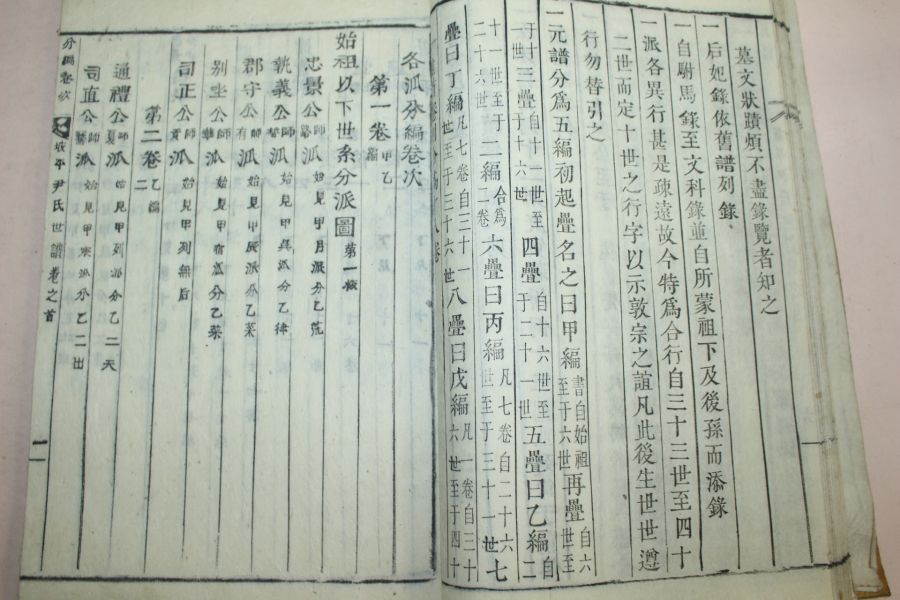 墓文狀蹟煩不盡錄覽者知之
一后妃錄依舊譜列錄
自駙馬錄至文科錄並自所蒙祖下及後孫而添錄
一派各異行甚是疎遠故今特爲合行自三十三世至四十
二世而定十世之行字以示敦宗之誼凡此後生世世遵
行勿替引之
一元譜分爲五編初起疊名之曰甲編書自始祖至于六世再疊自六世至
于十一世三疊自十一世至于十六世四疊自十六世至于二十一世五疊曰乙編自二
十一世至于二十六世二編合爲二卷六疊曰丙編凡七卷自二十六世至于三十一世七
疊曰丁編凡七卷自三十一世至于三十六世八疊曰戊編凡一卷自三十六世至于四十
各派分編卷次
第一卷甲乙編
始祖以下世系分派圖第一板
忠景公派始見甲月派分乙荒
執義公派始見甲 派分乙律
郡守公派始見甲辰派分乙菜
別坐公派始見甲宿派分乙菜
司正公派始見甲列無后
第二卷乙編二
通禮公派始見甲列派分乙二天
司直公派始見甲來派分乙二出
分編卷次 坡平尹氏世譜卷之首 一